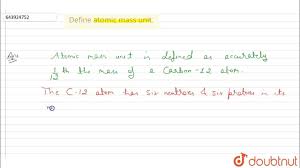 643924752
Define atomic mass unit.
Ans Atomic mass unit is defined as accurately
1/12 th the mass of a Carbon-12 atom.
The C-12 atom has six neutrons & six protons in its
doubtnut